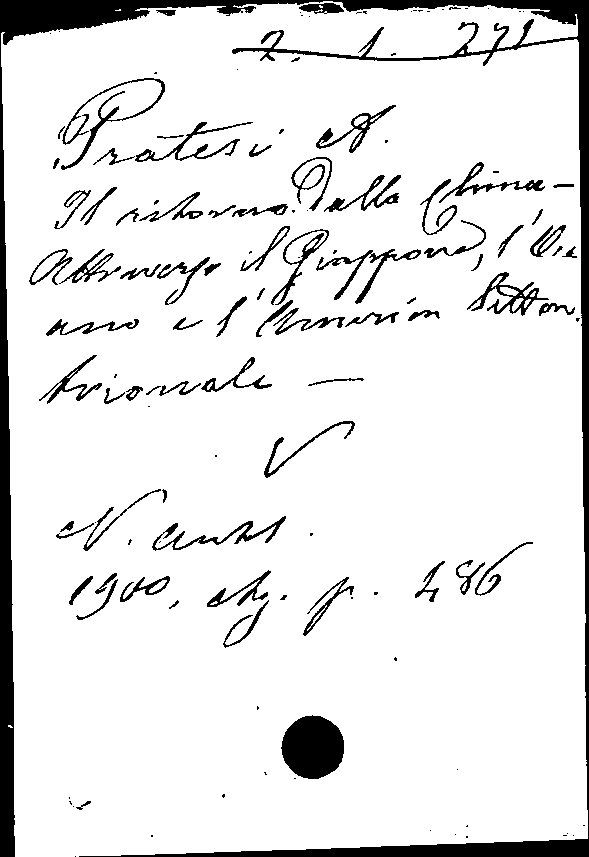 2. 1. 271
Pratesi A.
Il ritorno dalla China -
Attraverso il Giappone, l'Oce
ano e l'America Setten
trionale —
V
N. Ant.
1900, Mg. p. 486